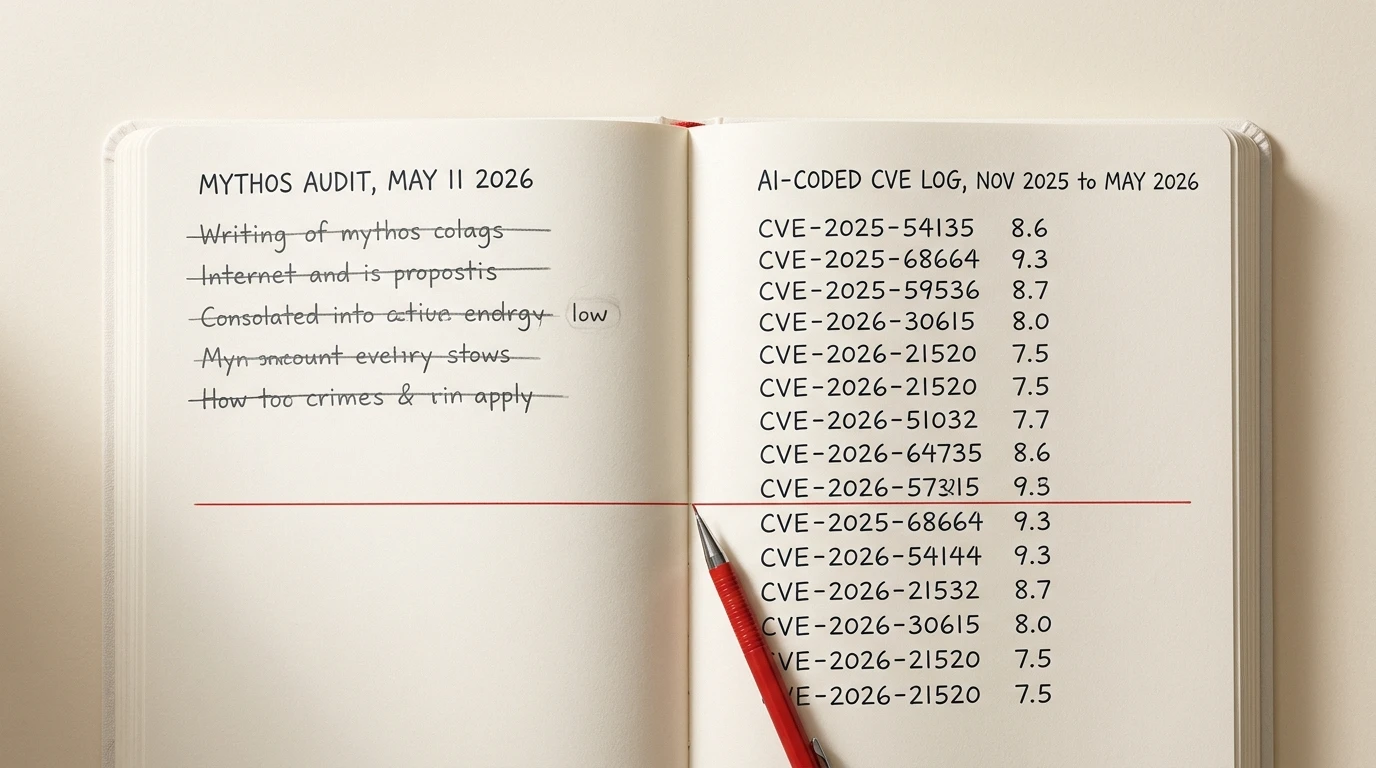 MYTHOS AUDIT, MAY 11 2026
Writing of mythos colags
Internet and is propostis
Consolated into active endrgy low
Myn evehry stows
How too crimes & rin apply
AI-CODED CVE LOG, NOV 2025 to MAY 2026
CVE-2025-54135 8.6
CVE-2025-68664 9.3
CVE-2025-59536 8.7
CVE-2026-30615 8.0
CVE-2026-21520 7.5
CVE-2026-21520 7.5
CVE-2026-51032 7.7
CVE-2026-64735 8.6
9.3
CVE-2025-68664 9.3
CVE-2026-54144 9.3
CVE-2026-21532 8.7
CVE-2026-30615 8.0
VE-2026-21520 7.5
E-2026-21520 7.5